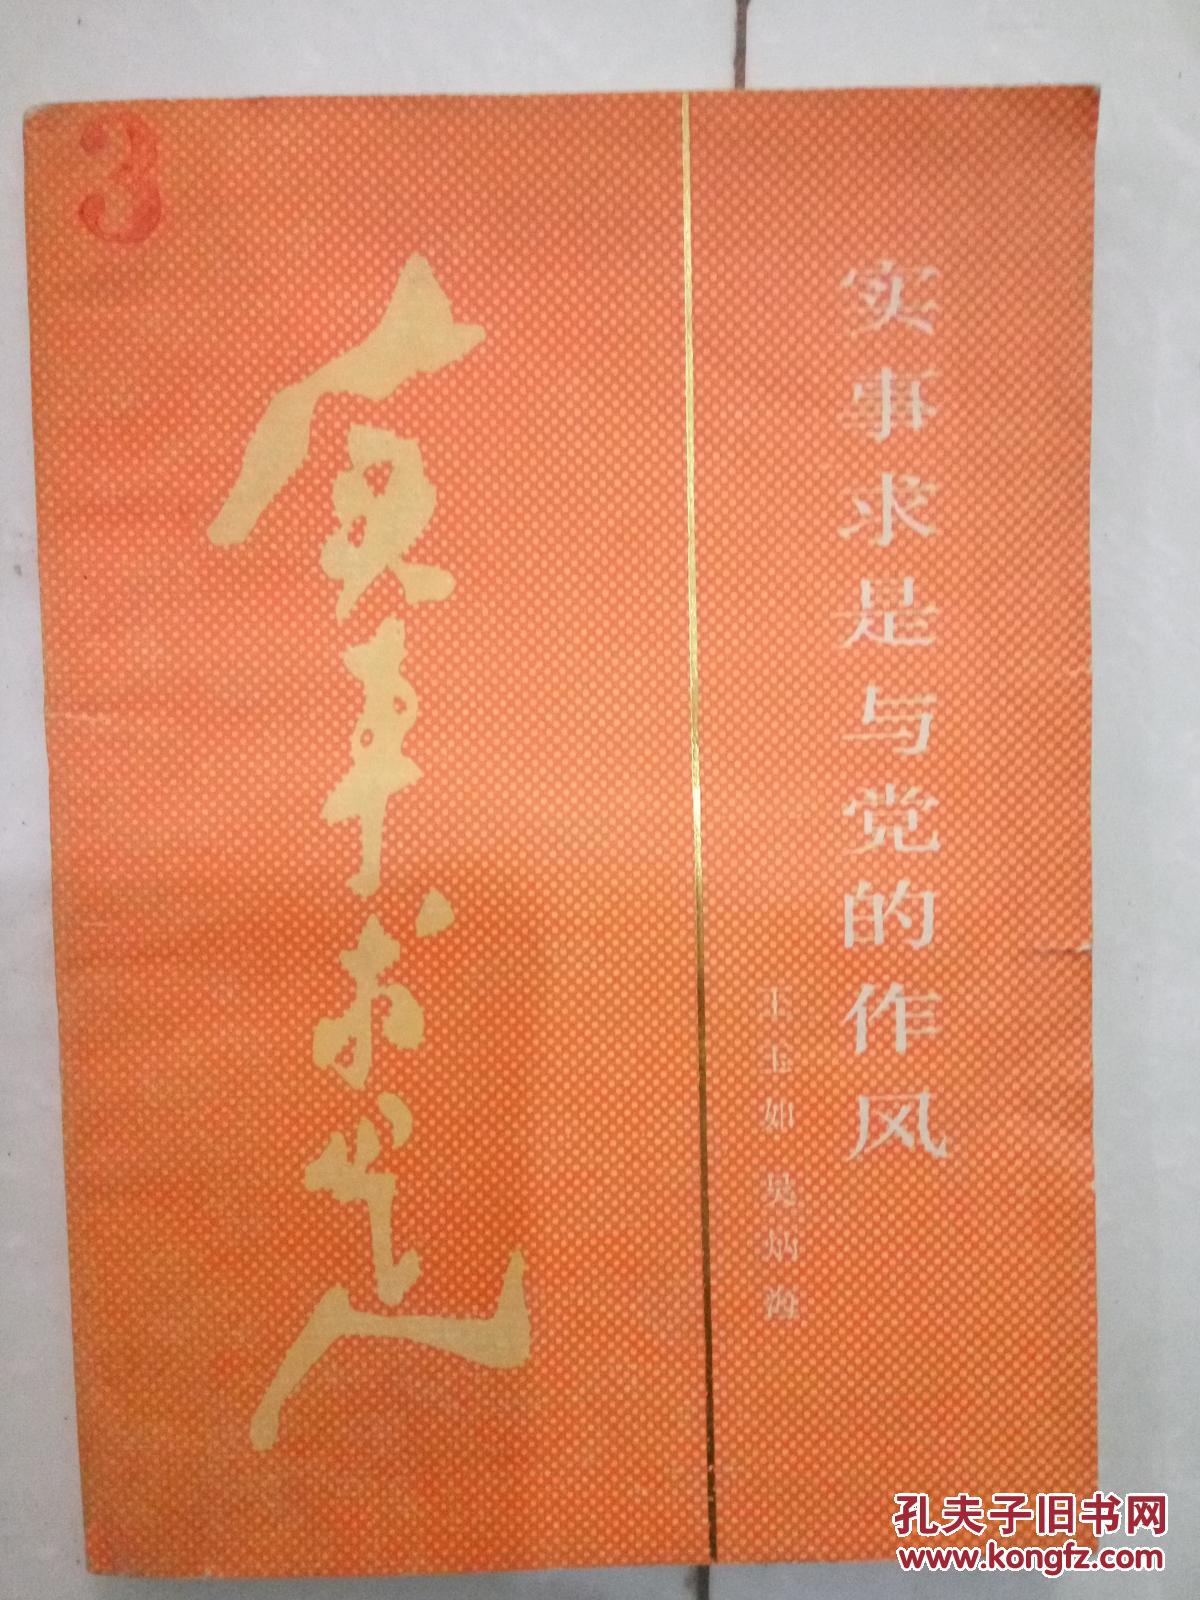 3
实事求是
实事求是与党的作风
王玉如 吴炳海
孔夫子旧书网
www.kongfz.com